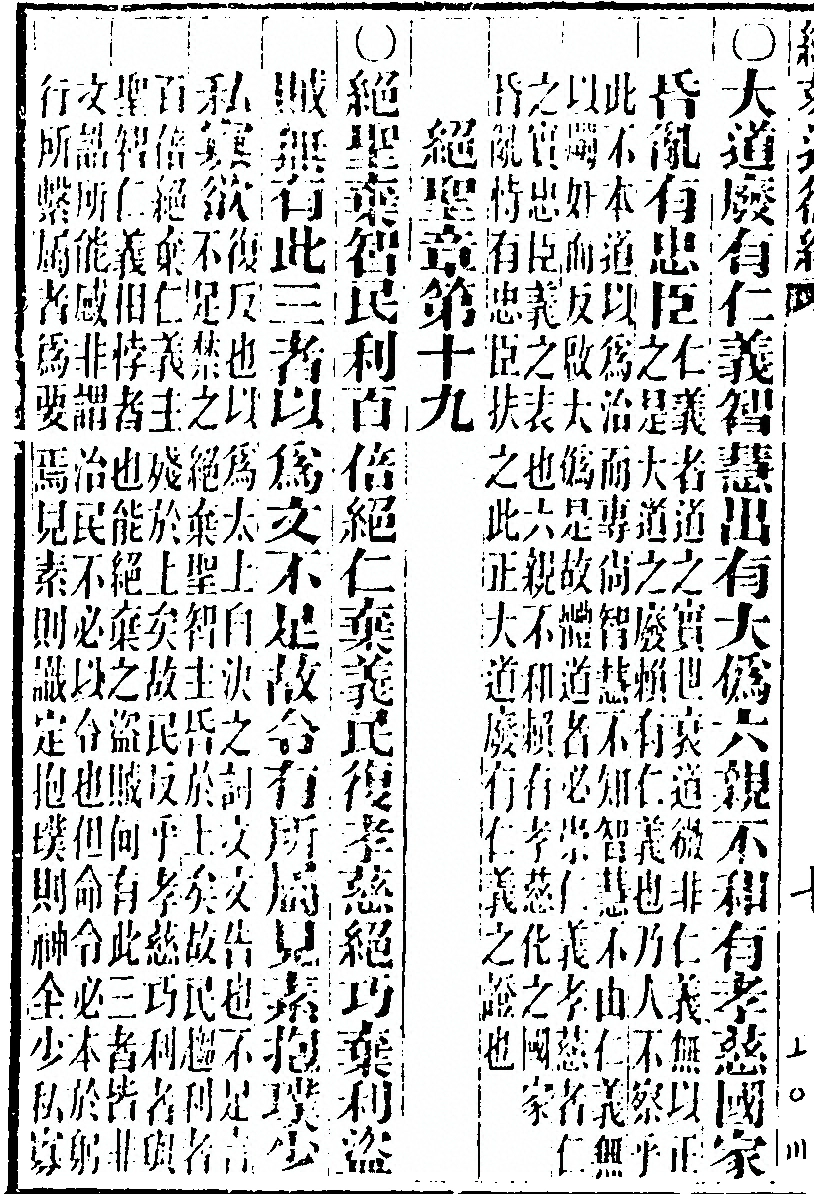 道德經 四 十
〇大道廢有仁義智慧出有大僞六親不和有孝慈國家
昏亂有忠臣
仁義者道之實也衰道微非仁義無以正
之是大道之廢賴有仁義也乃人不察乎
此不本道以爲治而專尚智慧不知智慧不由仁義無
以奸而反啟大僞是故體道者必崇仁義孝慈者仁
之實忠臣義之表也六親不和賴有孝慈化之國家
昏亂恃有忠臣扶之此正大道廢有仁義之證也
絕聖章第十九
〇絕聖棄智民利百倍絕仁棄義民復孝慈絕巧棄利盜
賊無有此三者以爲文不足故令有所屬見素抱璞少
私寡欲
復反也以爲太上自決之詞文文告也不足言
不足禁之絕棄聖智主昏於上矣故民趨利者
百倍絕棄仁義主殘於上矣故民反乎孝慈巧利者與
聖智仁義相悖者也能絕棄之盜賊何有此三者皆非
文誥所能感非謂治民不必以令也但命令必本於躬
行所繫屬者爲要焉見素則識定抱璞則神全少私寡